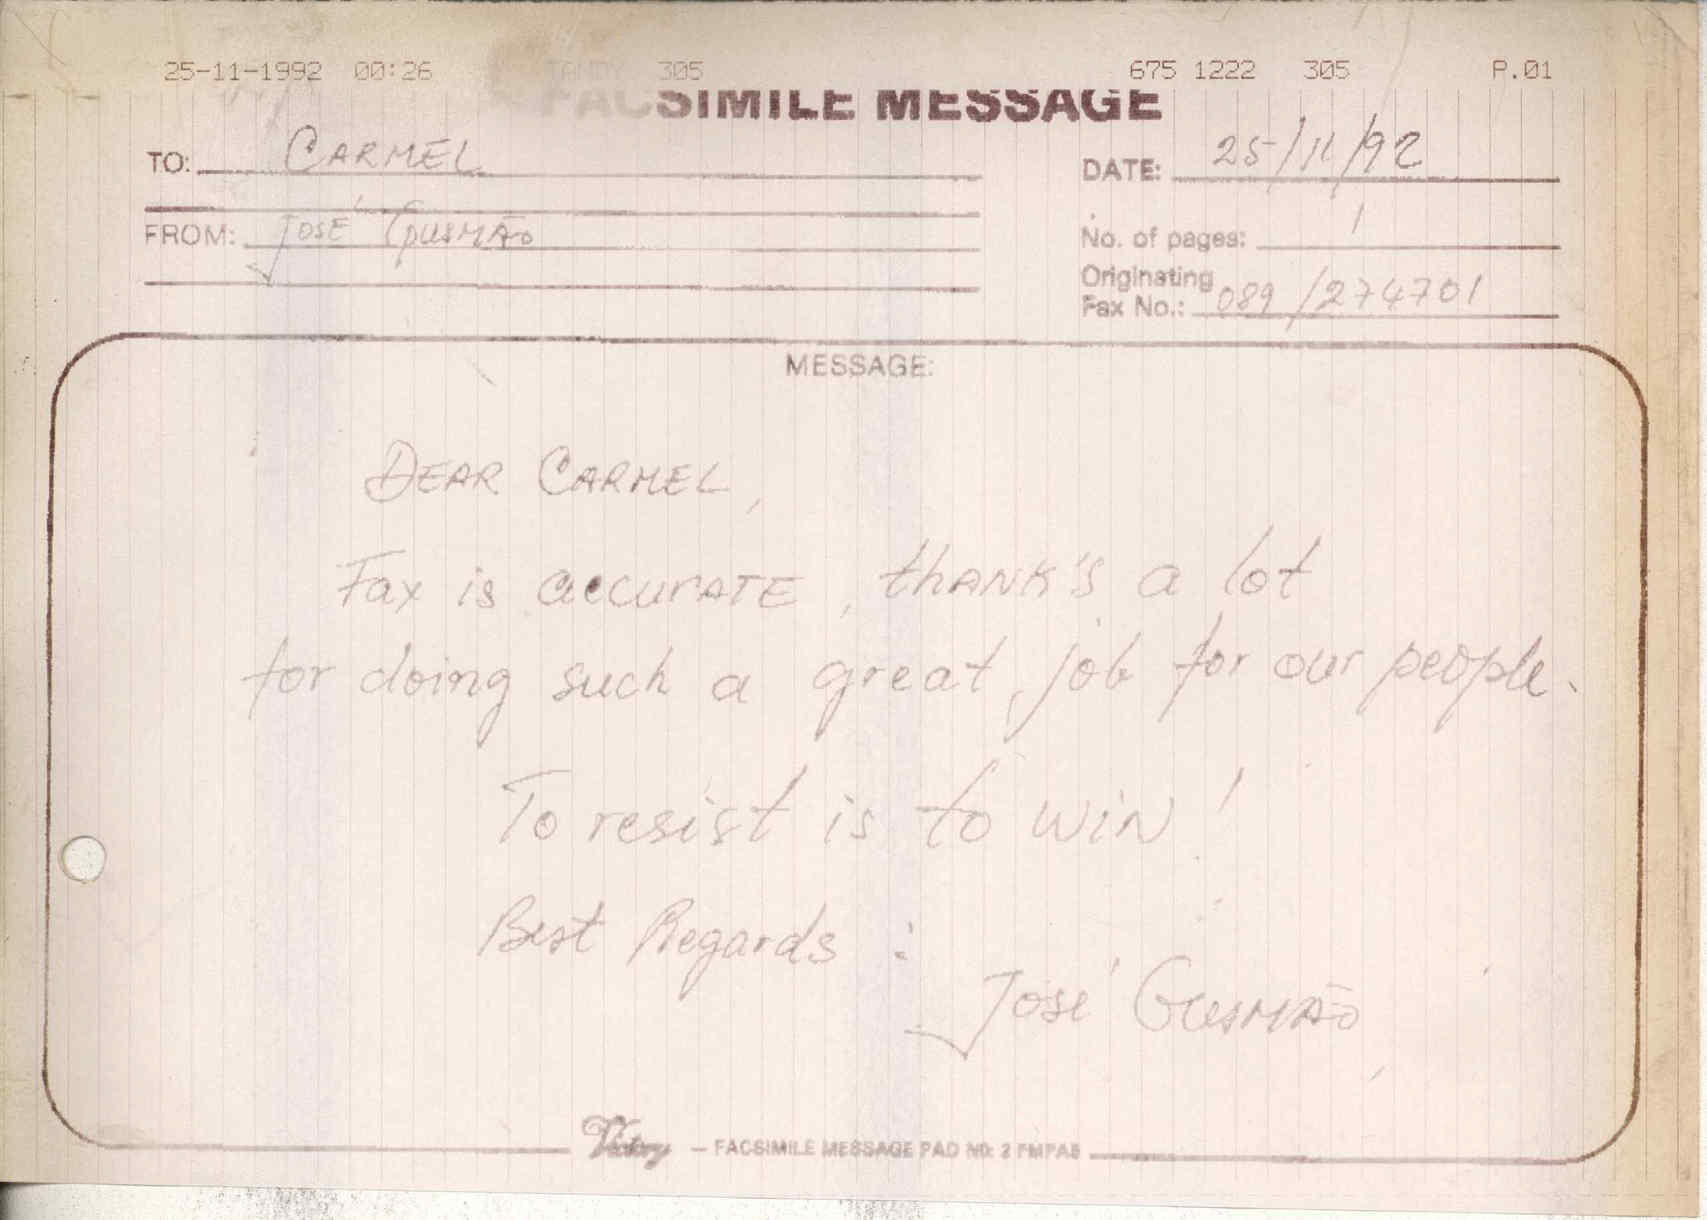 25-11-1992 00:26 TANDY 305 675 1222 305 P.01
FACSIMILE MESSAGE
TO: CARMEL
DATE: 25/11/92
FROM: JOSÉ GUSMÃO
No. of pages: 1
Originating
Fax No.: 089/274701
MESSAGE:
DEAR CARMEL,
Fax is accurATE, thANK's a lot
for doing such a great job for our people.
To resist is to WiN!
Best Regards :
José GUSMÃO
Victory — FACSIMILE MESSAGE PAD NO: 2 FMPA5